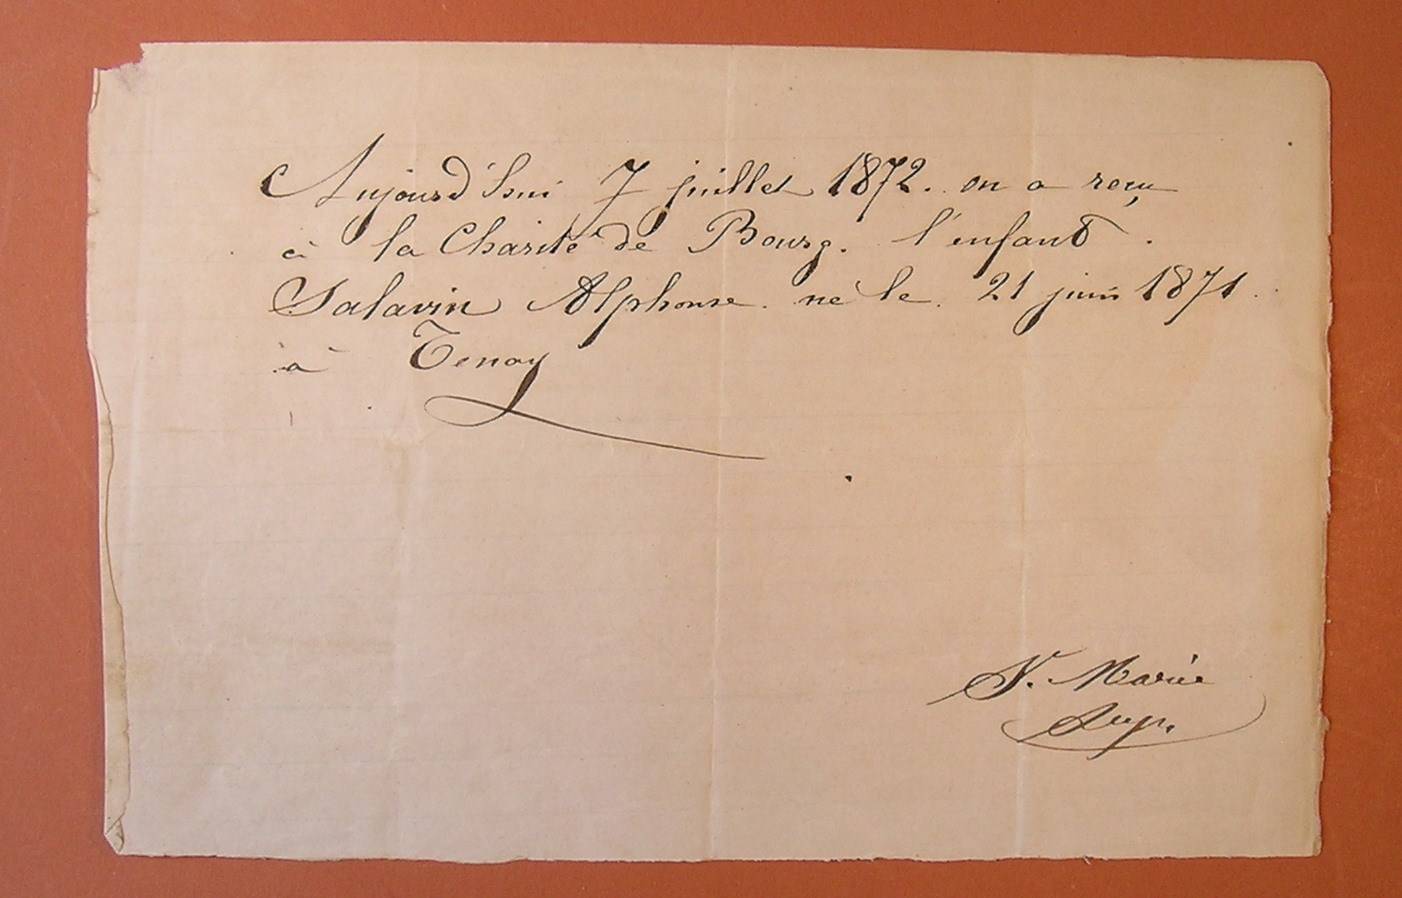 Aujourd'hui 7 juillet 1872. on a reçu
à la Charité de Bourg. l'enfant.
Salavin Alphonse. né le. 21 juin 1871.
à Tenay
Sr. Marie
Supr.